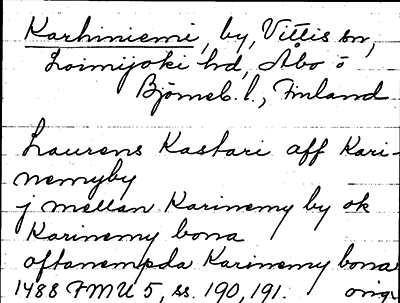 Karhiniemi, by, Vittis sn,
Loimijoki hd, Åbo o
Björneb. l., Finland
Laurens Kastari aff Kari-
nemyby
j mellan Karinemy by ok
Karinemy bona
oftanempda Karinemy bona
1488 FMU 5, ss. 190, 191. orig.